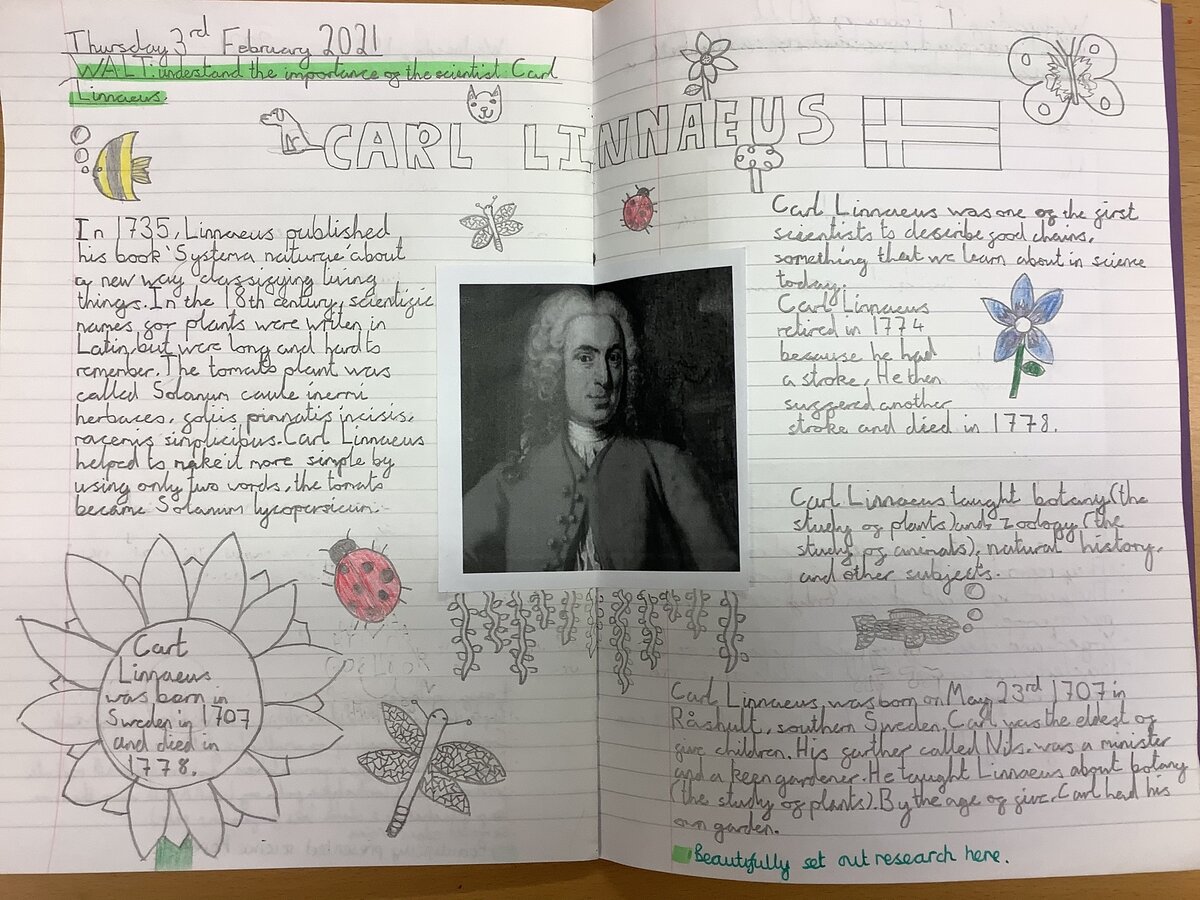 Thursday 3rd February 2021
WALT: understand the importance of the scientist Carl
Linnaeus.
CARL LINNAEUS
In 1735, Linnaeus published
his book 'Systema naturae' about
a new way classifying living
things. In the 18th century, scientific
names for plants were writen in
Latin, but were long and hard to
remember. The tomato plant was
called Solanum caule inermi
herbaceo, foliis pinnatis incisis,
racemis simplicibus. Carl Linnaeus
helped to make it more simple by
using only two words, the tomato
became Solanum lycopersicum.
Carl
Linnaeus
was born in
Sweden in 1707
and died in
1778.
Carl Linnaeus was one of the first
scientists to describe food chains,
something that we learn about in science
today.
Carl Linnaeus
retired in 1774
because he had
a stroke. He then
suffered another
stroke and died in 1778.
Carl Linnaeus taught botany (the
study of plants) and zoology (the
study of animals), natural history,
and other subjects.
Carl Linnaeus was born on May 23rd 1707 in
Råshult, southern Sweden. Carl was the eldest of
five children. His farther called Nils was a minister
and a keen gardener. He taught Linnaeus about botany
(the study of plants). By the age of five, Carl had his
own garden.
Beautifully set out research here.